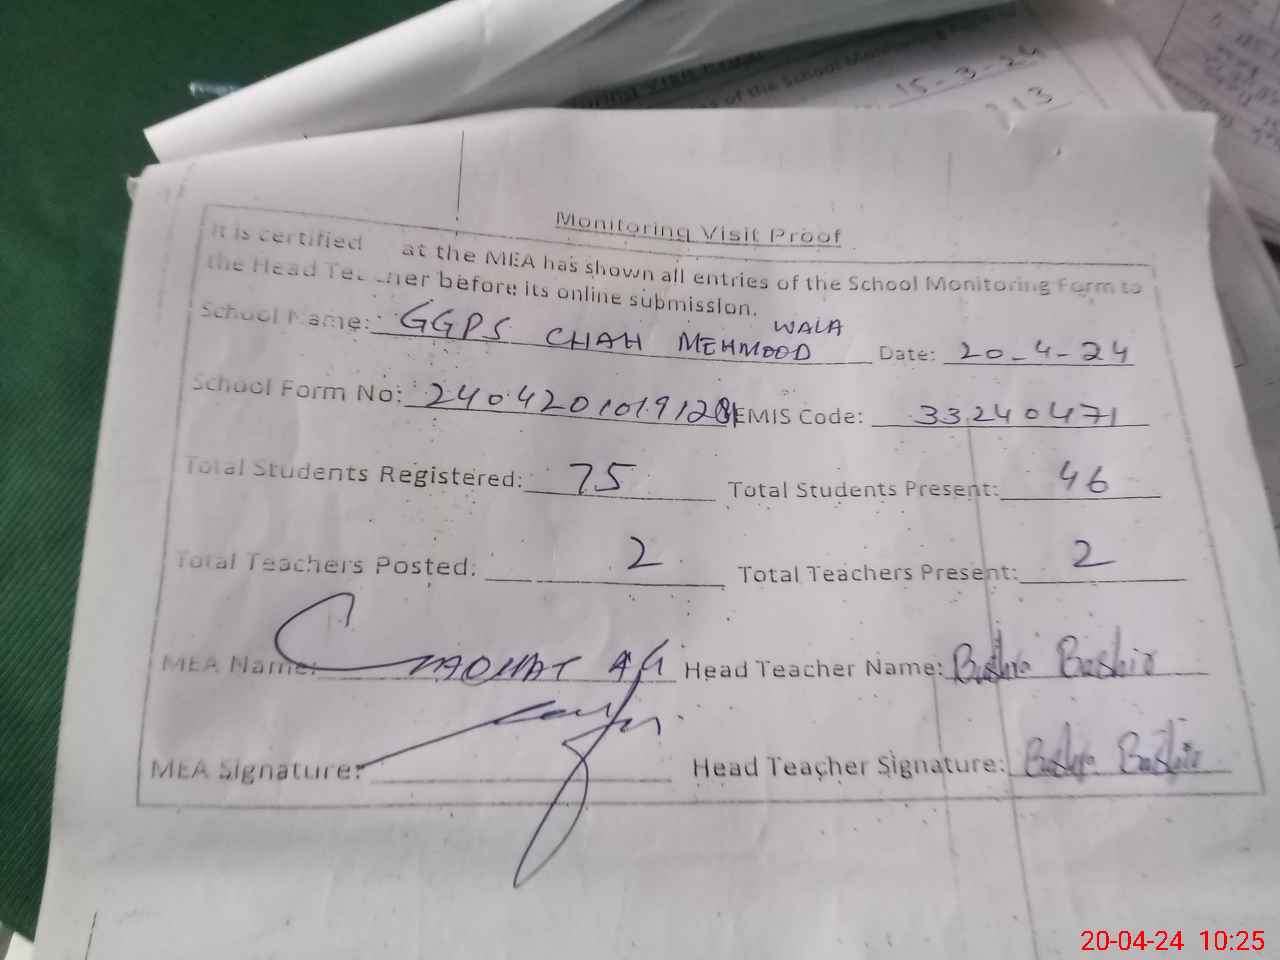 15-3-24
213
Monitoring Visit Proof
It is certified at the MEA has shown all entries of the School Monitoring Form to
the Head Teacher before its online submission.
School Name: GGPS CHAH MEHMOOD WALA Date: 20-4-24
School Form No: EMIS Code: 33240471
Total Students Registered: 75 Total Students Present: 46
Total Teachers Posted: 2 Total Teachers Present: 2
MEA Name: Head Teacher Name: Bushra Bashir
MEA Signature: Head Teacher Signature: Bushra Bashir
20-04-24 10:25